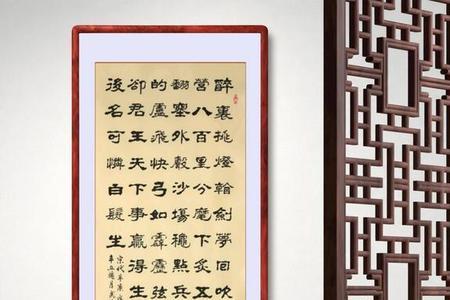 醉裏挑燈看劍夢回吹
營八百里分麾下炙五
翻塞外聲沙場穐點兵
的盧飛快弓如霹靂弦
卻君王天下事贏得生
後名可憐白髮生
宋代辛
辛丑